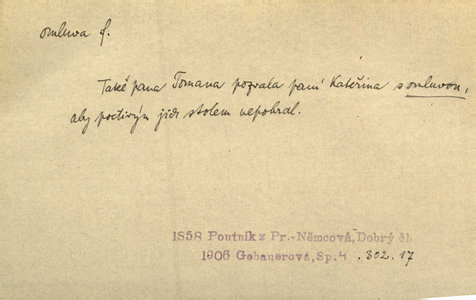 omluva f.
Také pana Tomana pozvala paní Kateřina s omluvou,
aby poctivým jich stolem nepohrdal.
1858 Poutník z Pr.-Němcová, Dobrý čl.
1906 Gebauerová, Sp. 4 . 302 . 17